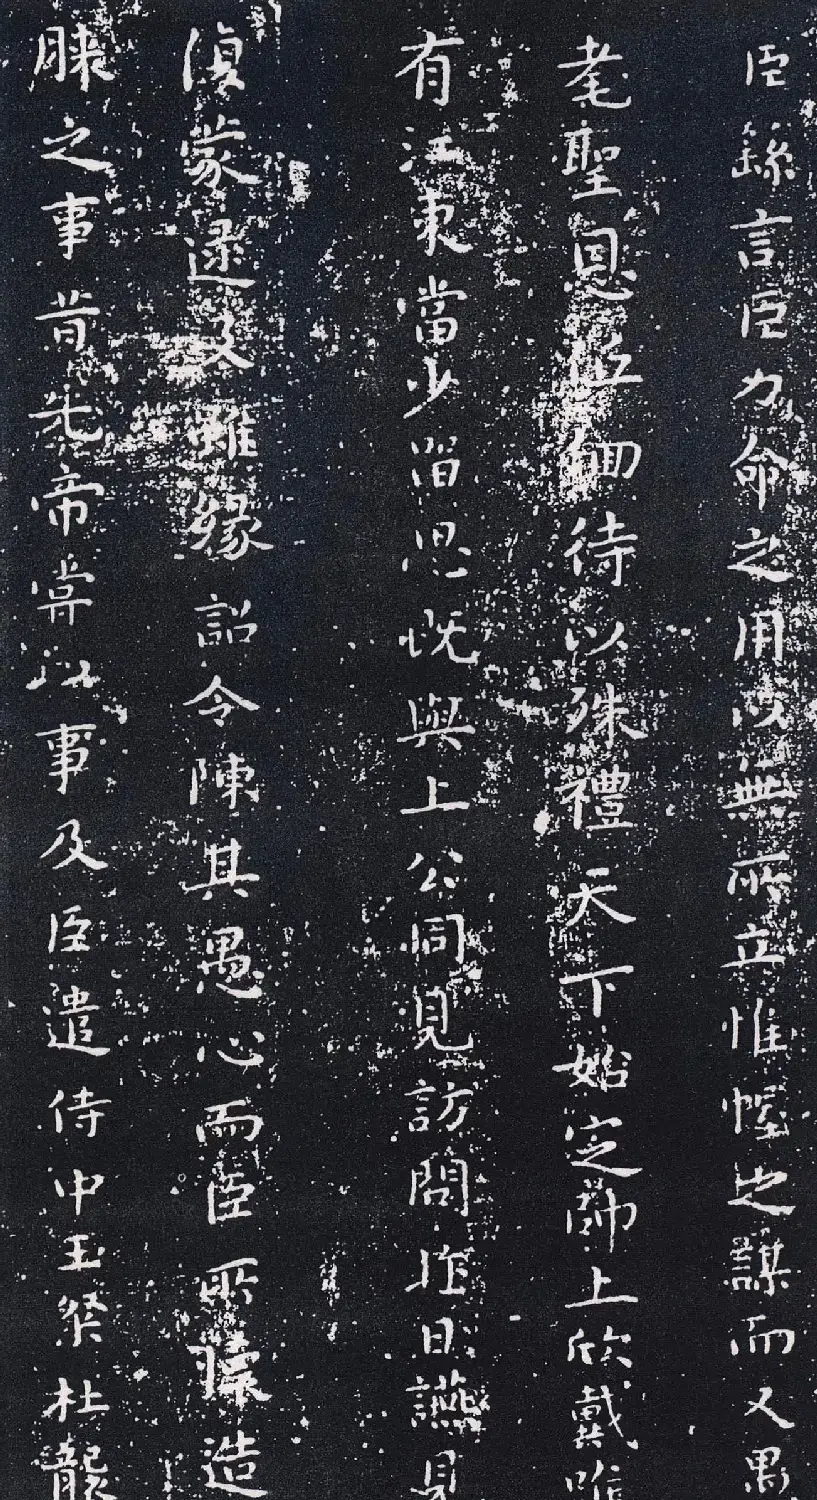 臣繇言臣力命之用以無所立惟幄之謀而又愚
耄聖恩低徊待以殊禮天下始定師上欣戴唯
有江東當少留思既與上公同見訪問昨日讌見
復蒙逮及雖緣詔令陳其愚心而臣所懷造
膝之事昔先帝嘗以事及臣遣侍中王粲杜襲